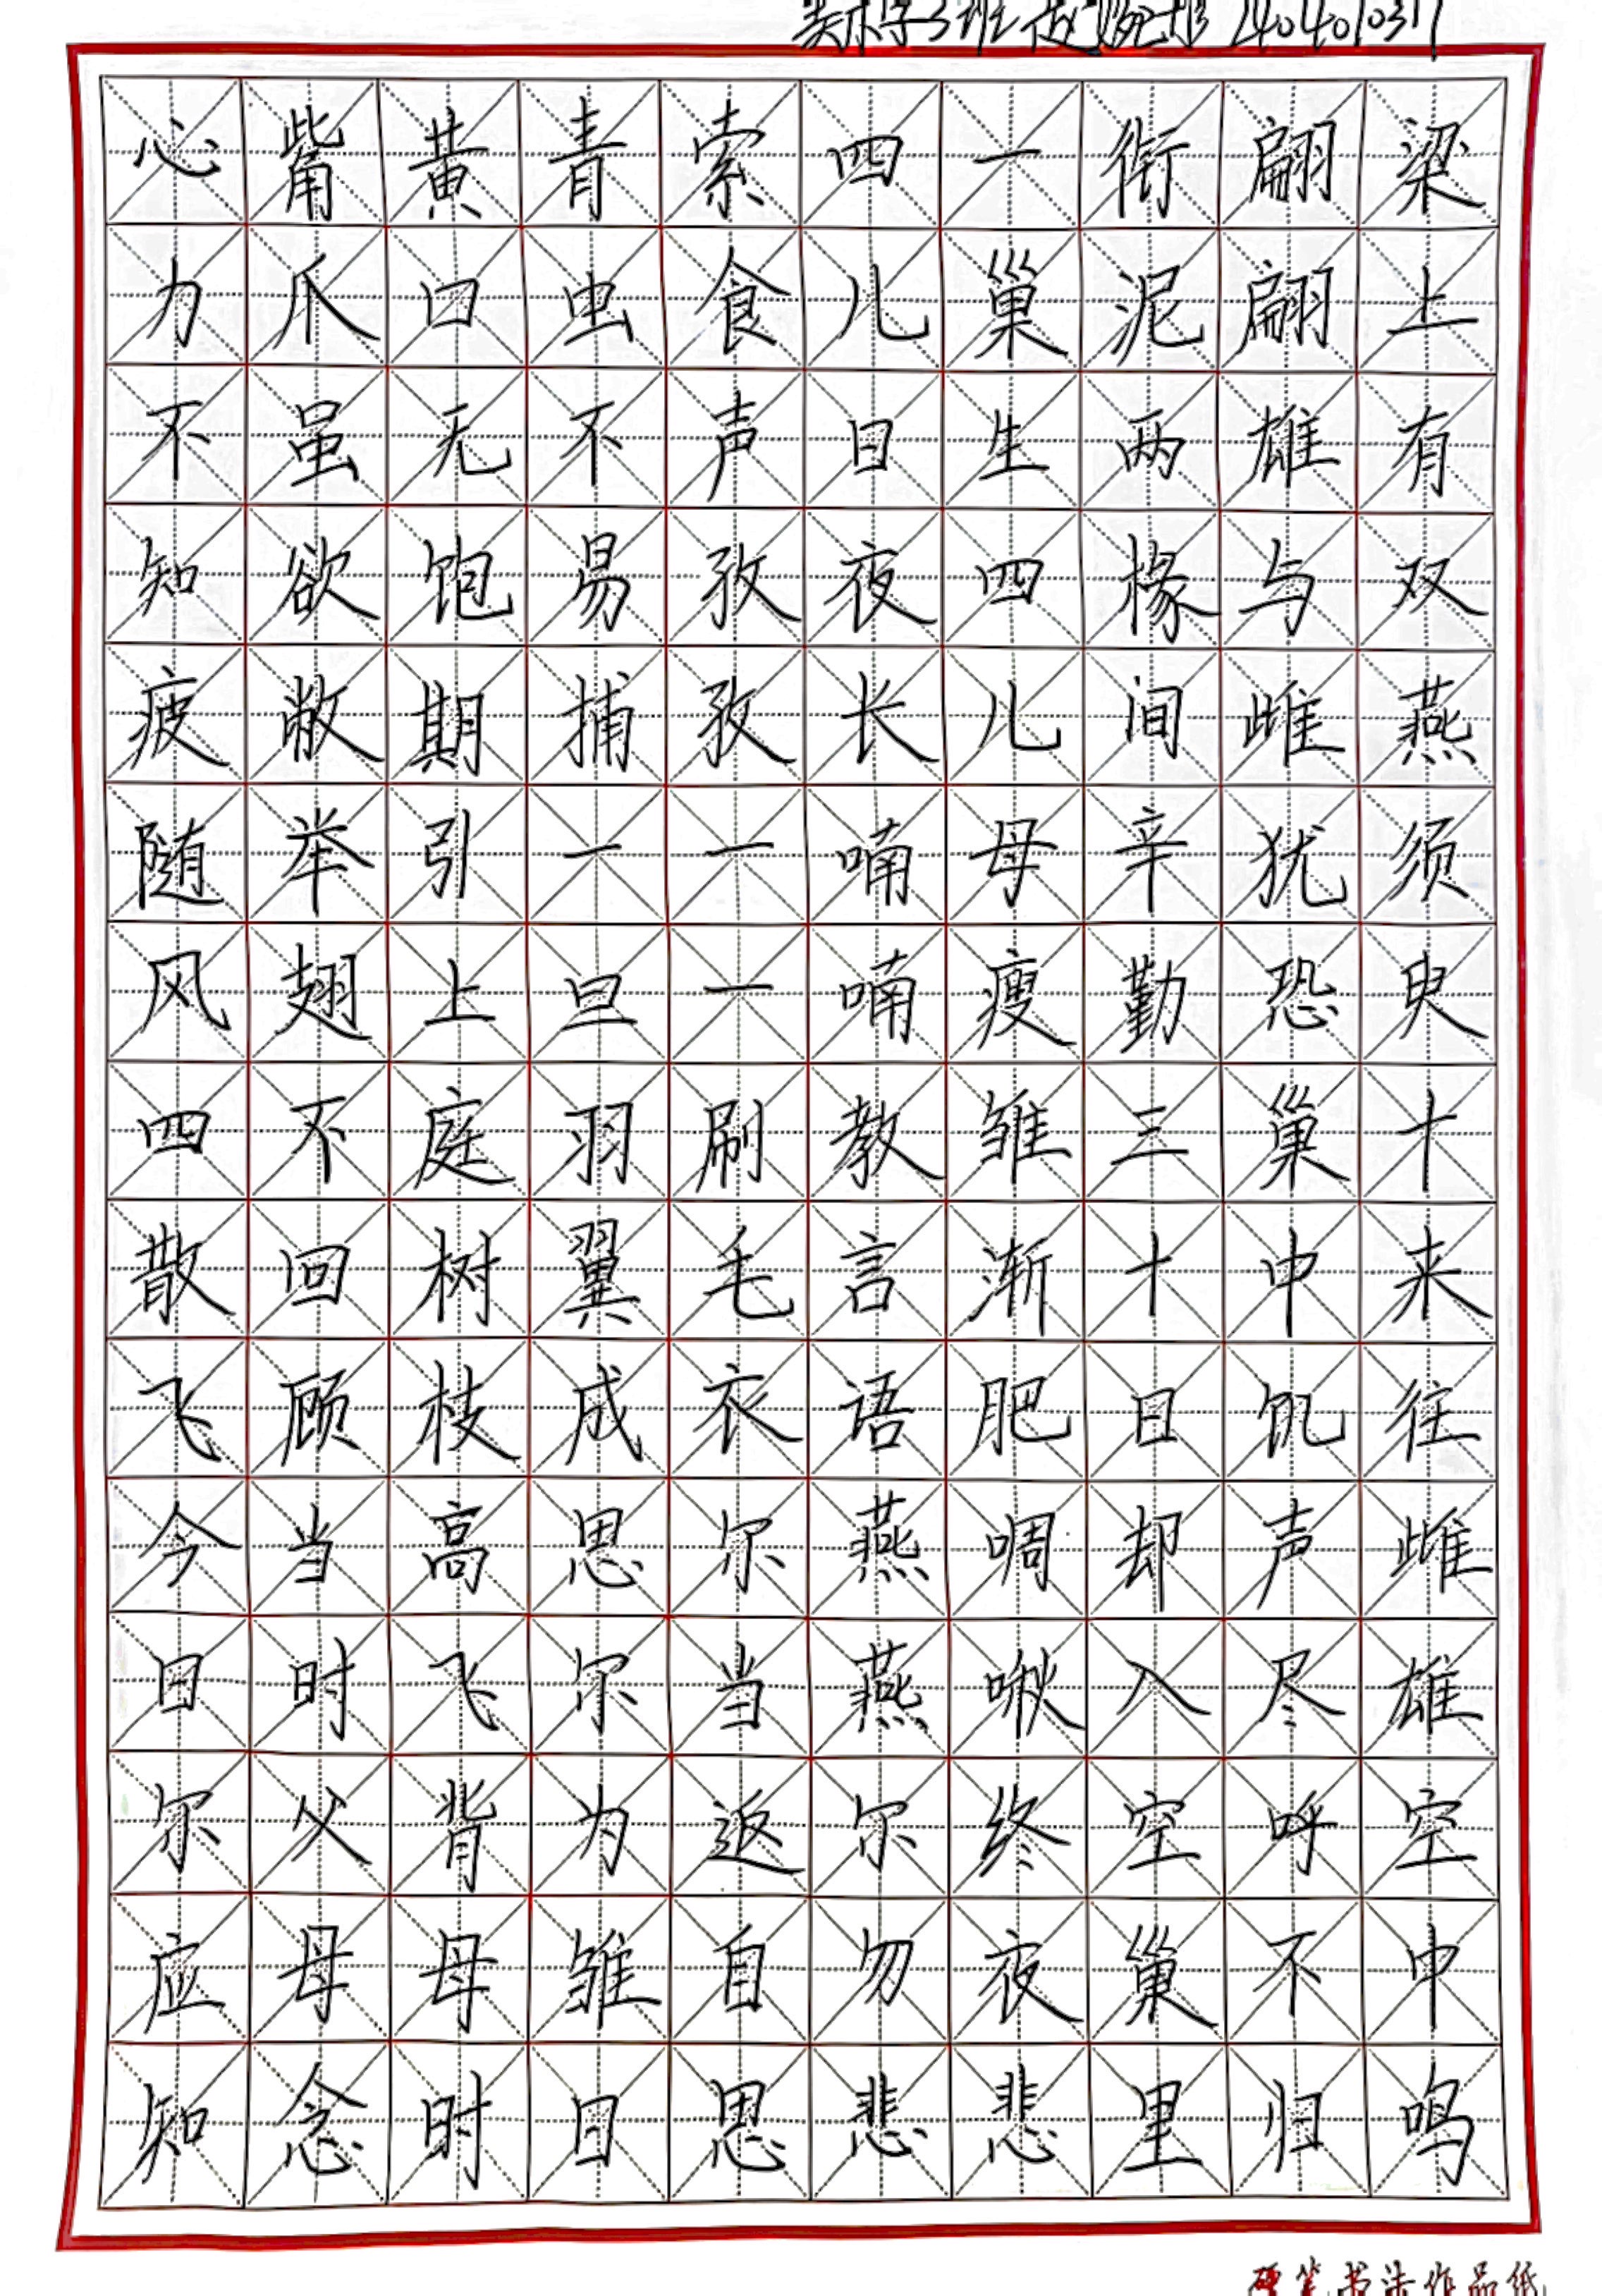 美术学3班
梁上有双燕须臾十来往雌雄空中鸣
翩翩雄与雌犹恐巢中饥声尽呼不归
衔泥两椽间辛勤三十日却入空巢里
一巢生四儿母瘦雏渐肥啁啾终夜悲
四儿日夜长喃喃教言语燕燕尔勿悲
索食声孜孜一一刷毛衣尔当返自思
青虫不易捕一旦羽翼成思尔为雏日
黄口无饱期引上庭树枝高飞背母时
觜爪虽欲敝举翅不回顾当时父母念
心力不知疲随风四散飞今日尔应知
硬笔书法作品纸